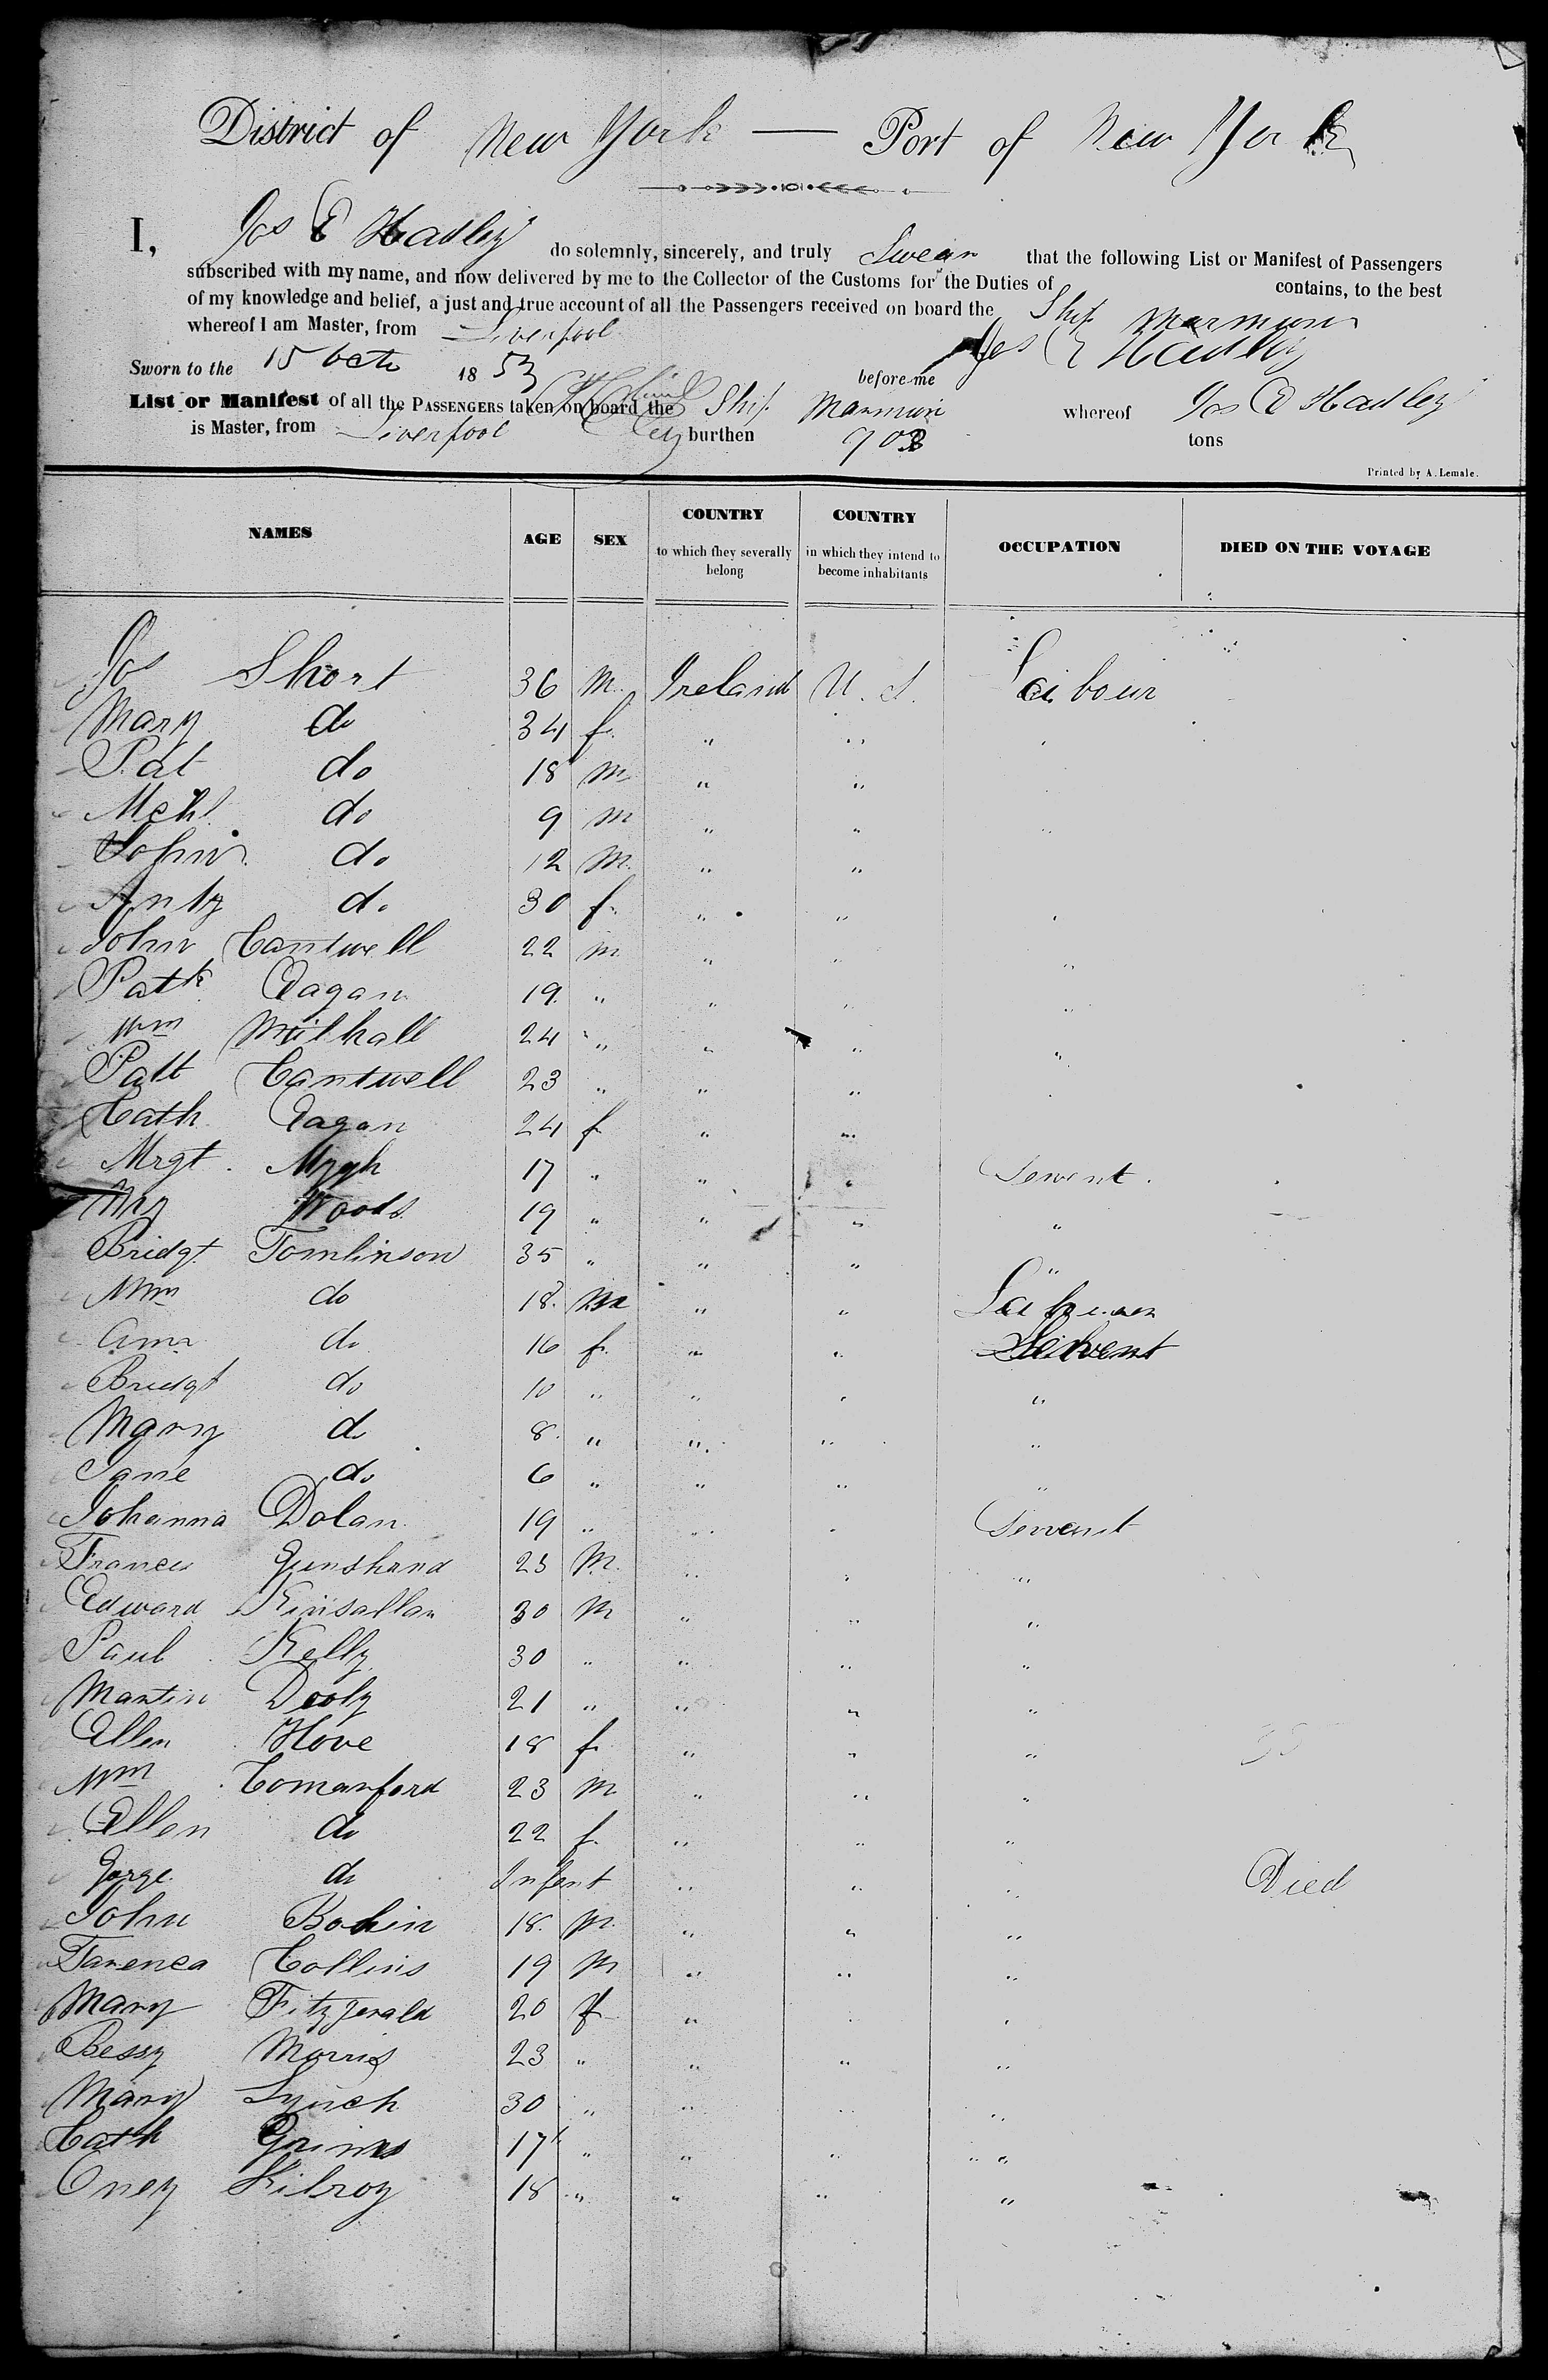 District of New York — Port of New York
I, Jos E Hadley do solemnly, sincerely, and truly Swear that the following List or Manifest of Passengers
subscribed with my name, and now delivered by me to the Collector of the Customs for the Duties of contains, to the best
of my knowledge and belief, a just and true account of all the Passengers received on board the Ship Marmion
whereof I am Master, from Liverpool
Jos E Hadley
Sworn to the 15 Octo 1853 before me
List or Manifest of all the PASSENGERS taken on board the Ship Marmion whereof Jos E Hadley
is Master, from Liverpool burthen 903 tons
Printed by A. Lemale.
NAMES AGE SEX COUNTRY to which they severally belong COUNTRY in which they intend to become inhabitants OCCUPATION DIED ON THE VOYAGE
Jos Short 36 M Ireland U. S. Labour
Mary do 34 f " "
Pat do 18 M " "
Mchl do 9 M " "
John do 12 M " "
Anty do 30 f " "
John Cantwell 22 M " " "
Patk Eagan 19 " " " "
Wm Mulhall 24 " " " "
Patt Cantwell 23 " " "
Cath Eagan 24 f " "
Mrgt " 17 " " " Servent
Mry Woods 19 " " " "
Bridgt Tomlinson 35 " " " "
Wm do 18 M " " Labour
Ann do 16 f " " Servent
Bridgt do 10 " " " "
Mary do 8 " " " "
Jane do 6 " " " "
Johanna Dolan 19 " " " Servent
Frances Gunshand 23 M " " "
Edward Kinsallan 30 M " " "
Paul Kelly 30 " " " "
Martin Dooly 21 " " " "
Ellen Hove 18 f " " "
Wm Comanford 23 M " " "
Ellen do 22 f " " "
Gorge do Infent " " " Died
John Bohin 18 M " " "
Tarenca Collins 19 M " " "
Mary Fitzgerald 20 f "
Bessy Morris 23 " " " "
Mary Lynch 30 " " " "
Cath Grims 17 " " " "
Oney Kilroy 18 " " " "